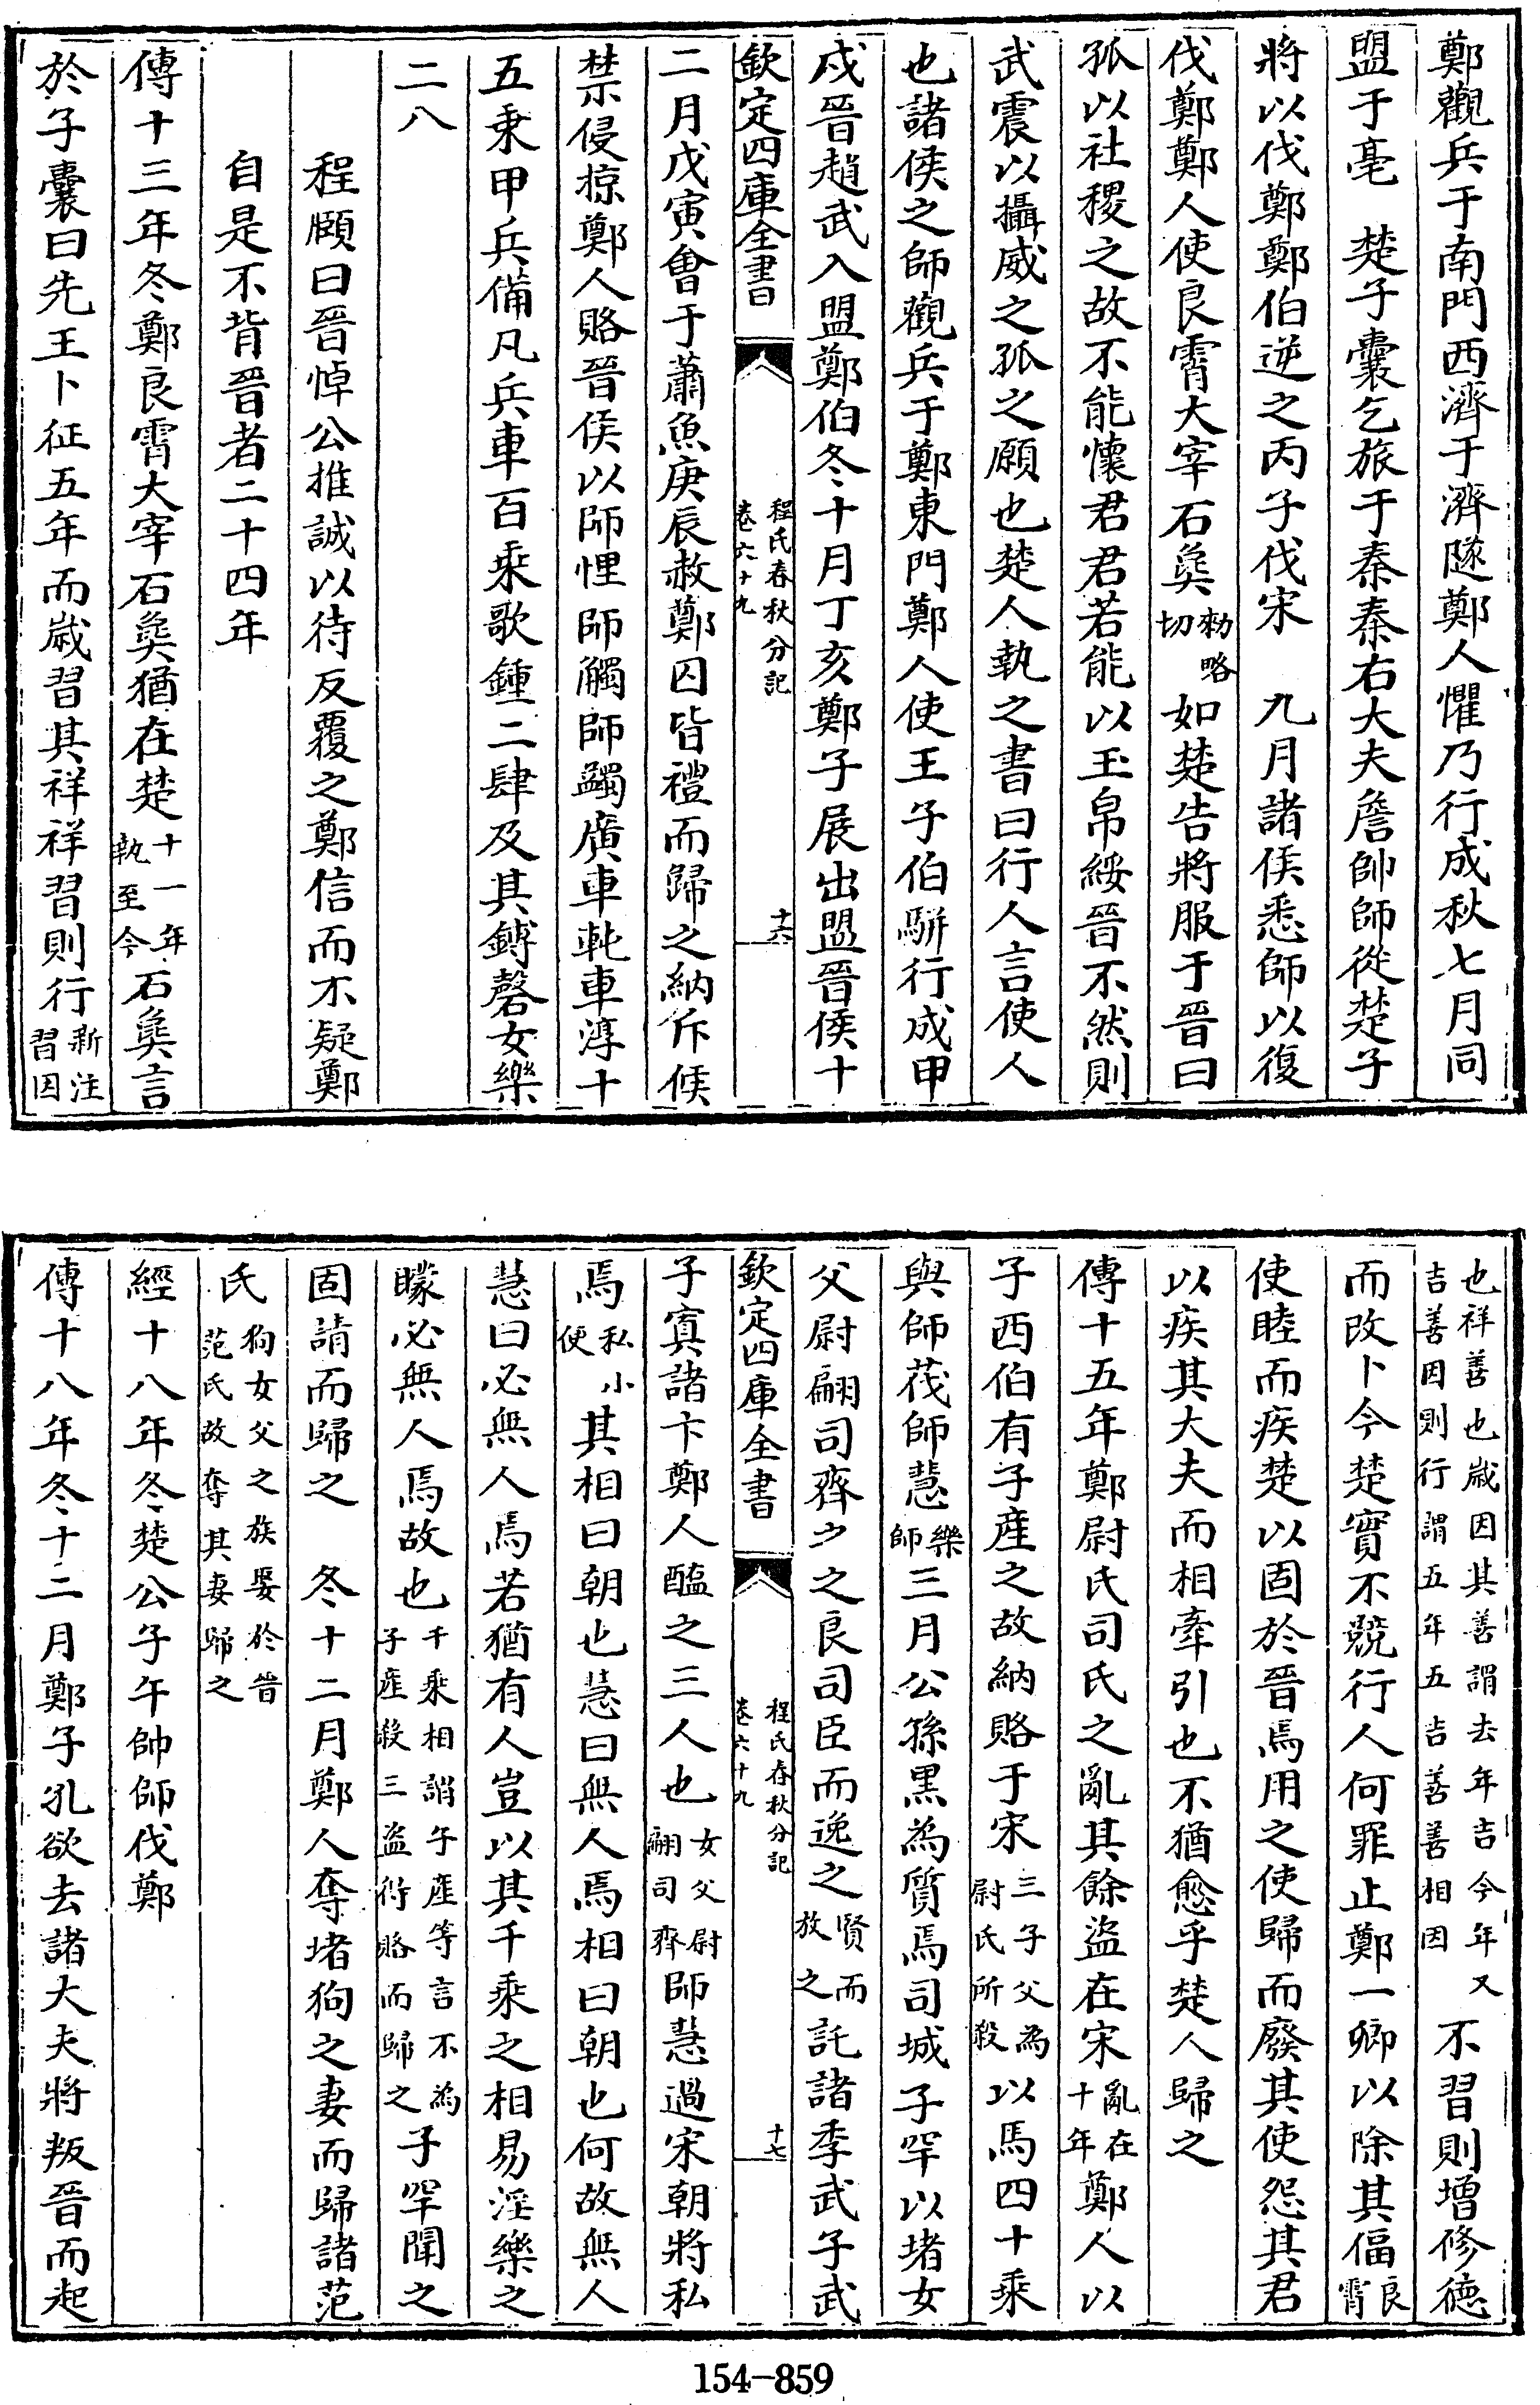 鄭觀兵于南門西濟于濟隧鄭人懼乃行成秋七月同
盟于亳　楚子囊乞旅于秦秦右大夫詹帥師從楚子
將以伐鄭鄭伯逆之丙子伐宋　九月諸侯悉師以復
伐鄭鄭人使良霄大宰石㚟勑略切如楚告將服于晉曰
孤以社稷之故不能懷君君若能以玉帛綏晉不然則
武震以攝威之孤之願也楚人執之書曰行人言使人
也諸侯之師觀兵于鄭東門鄭人使王子伯駢行成甲
戌晉趙武入盟鄭伯冬十月丁亥鄭子展出盟晉侯十
欽定四庫全書　程氏春秋分記卷六十九　十六
二月戊寅會于蕭魚庚辰赦鄭囚皆禮而歸之納斥候
禁侵掠鄭人賂晉侯以師悝師觸師蠲廣車軘車淳十
五乘甲兵備凡兵車百乘歌鍾二肆及其鎛磬女樂
二八
程頤曰晉悼公推誠以待反覆之鄭信而不疑鄭
自是不背晉者二十四年
傳十三年冬鄭良霄大宰石㚟猶在楚十一年執至今石㚟言
於子囊曰先王卜征五年而歲習其祥祥習則行新注習因
也祥善也歲因其善謂去年吉今年又吉善因則行謂五年五吉善善相因不習則增修德
而改卜今楚實不競行人何罪止鄭一卿以除其偪良霄
使睦而疾楚以固於晉焉用之使歸而廢其使怨其君
以疾其大夫而相牽引也不猶愈乎楚人歸之
傳十五年鄭尉氏司氏之亂其餘盜在宋亂在十年鄭人以
子西伯有子產之故納賂于宋三子父為尉氏所殺以馬四十乘
與師茷師慧樂師三月公孫黑為質焉司城子罕以堵女
父尉翩司齊少之良司臣而逸之賢而放之託諸季武子武
欽定四庫全書　程氏春秋分記卷六十九　十七
子寘諸卞鄭人醢之三人也女父尉翩司齊師慧過宋朝將私
焉私小便其相曰朝也慧曰無人焉相曰朝也何故無人
慧曰必無人焉若猶有人豈以其千乘之相易淫樂之
矇必無人焉故也千乘相謂子產等言不為子產殺三盜得賂而歸之子罕聞之
固請而歸之　冬十二月鄭人奪堵狗之妻而歸諸范
氏狗女父之族娶於晉范氏故奪其妻歸之
經十八年冬楚公子午帥師伐鄭
傳十八年冬十二月鄭子孔欲去諸大夫將叛晉而起
154-859